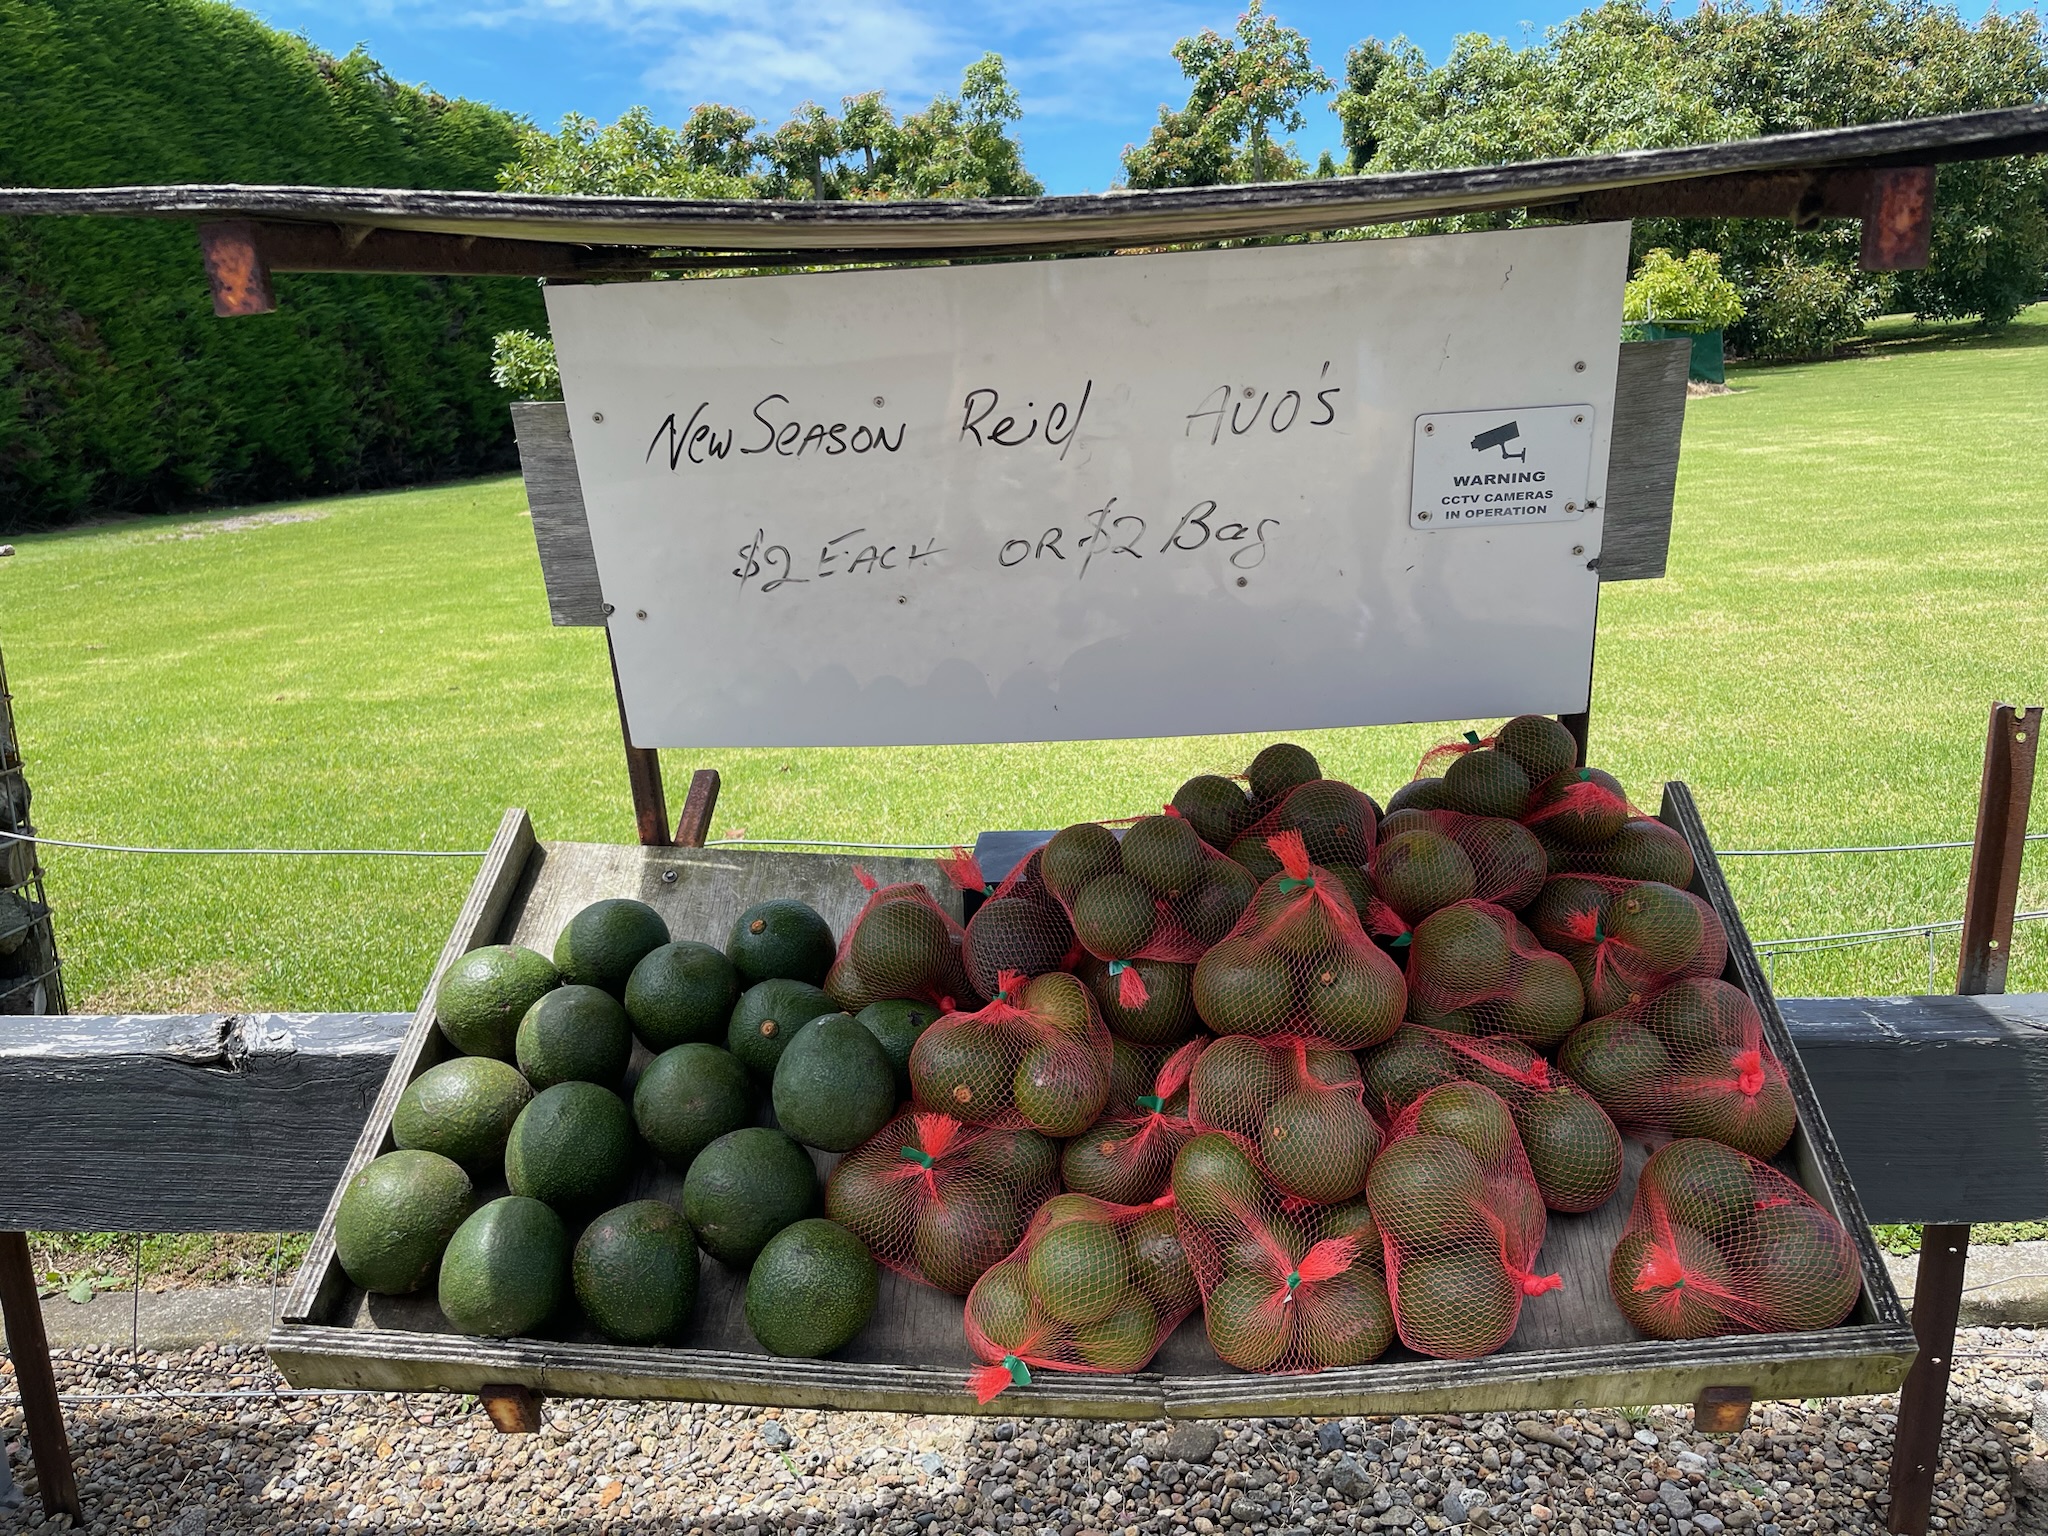 New Season Reid Avo's
$2 Each or $2 Bag
WARNING
CCTV CAMERAS
IN OPERATION